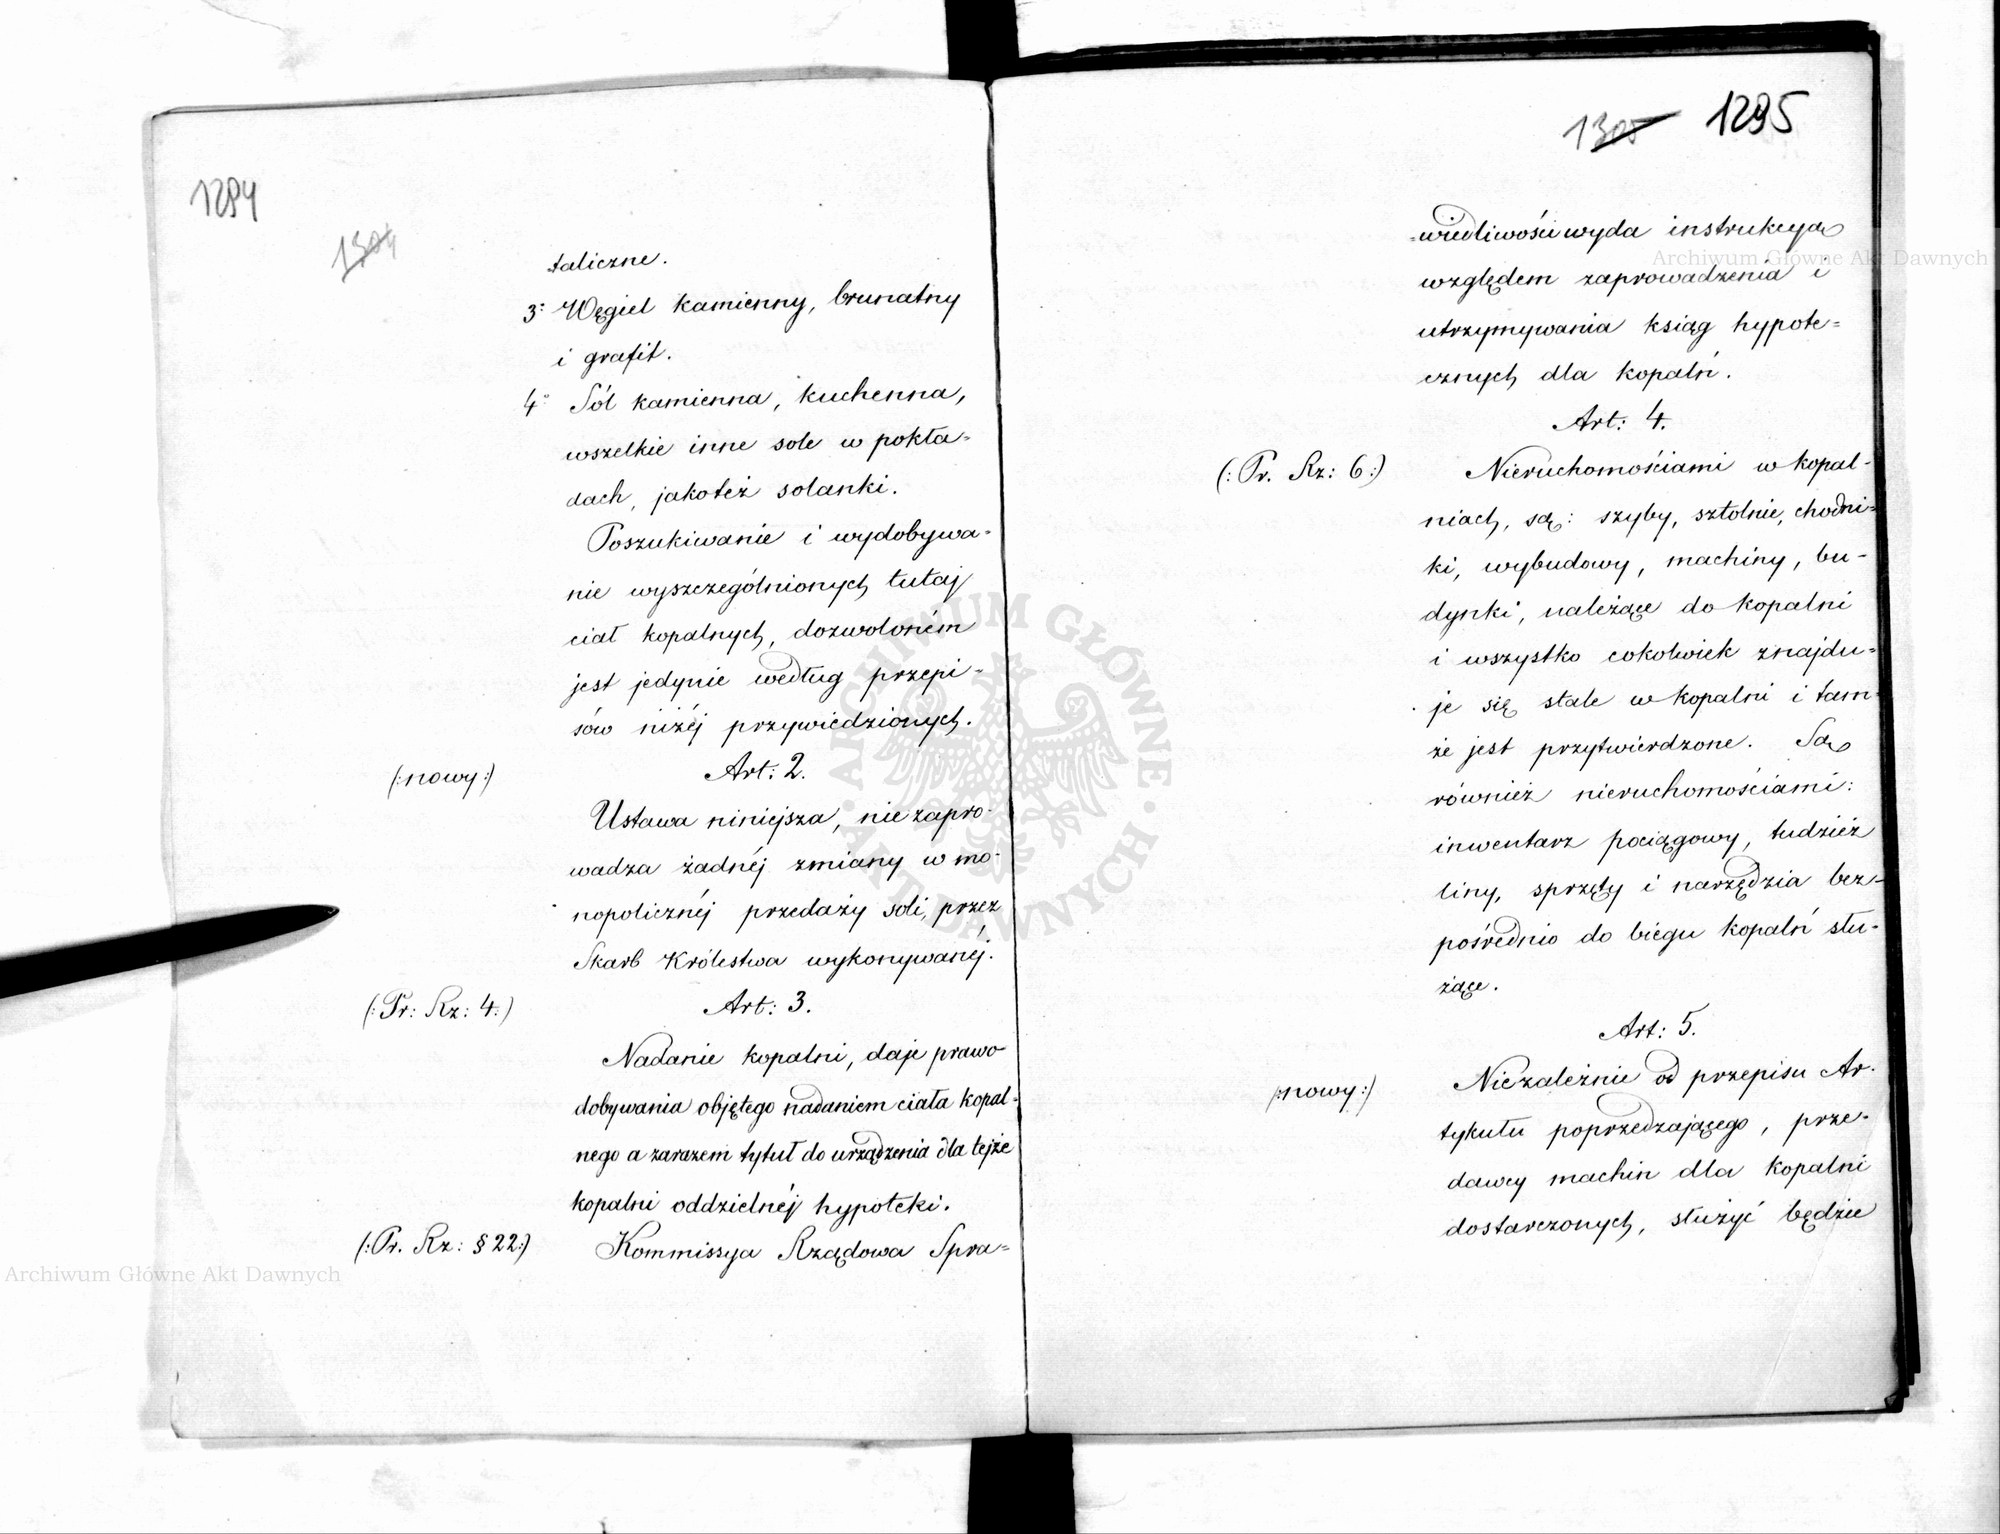 1294
1304
taliczne.
3: Węgiel kamienny, brunatny
i grafit.
4° Sól kamienna, kuchenna,
wszelkie inne sole w pokła=
dach, jakoteż solanki.
Poszukiwanie i wydobywa=
nie wyszczególnionych tutaj
ciał kopalnych, dozwoloném
jest jedynie według przepi=
sów niżéj przywiedzionych.
(:nowy:) Art: 2.
Ustawa niniejsza, nie zapro-
wadza żadnéj zmiany w mo-
nopolicznéj przedaży soli, przez
Skarb Królestwa wykonywanéj.
(: Pr: Rz: 4:) Art: 3.
Nadanie kopalni, daje prawo
dobywania objętego nadaniem ciała kopal-
nego a zarazem tytuł do urządzenia dla tejże
kopalni oddzielnéj hypoteki.
(: Pr. Rz: § 22:) Kommissya Rządowa Spra=
1305 1295
=wiedliwości wyda instrukcyą
względem zaprowadzenia i
utrzymywania ksiąg hypote=
cznych dla kopalń.
Art: 4.
(: Pr. Rz: 6:) Nieruchomościami w kopal-
niach, są: szyby, sztolnie, chodni=
ki, wybudowy, machiny, bu-
dynki, należące do kopalni
i wszystko cokolwiek znajdu=
je się stale w kopalni i tam=
że jest przytwierdzone. Są
również nieruchomościami:
inwentarz pociągowy, tudzież
liny, sprzęty i narzędzia bez-
pośrednio do biegu kopalń słu-
żące.
Art: 5.
(:nowy:) Niezależnie od przepisu Ar-
tykułu poprzedzającego, prze-
dawcy machin dla kopalni
dostarczonych, służyć będzie
Archiwum Główne Akt Dawnych
Archiwum Główne Akt Dawnych
· ARCHIWUM GŁÓWNE · AKT DAWNYCH